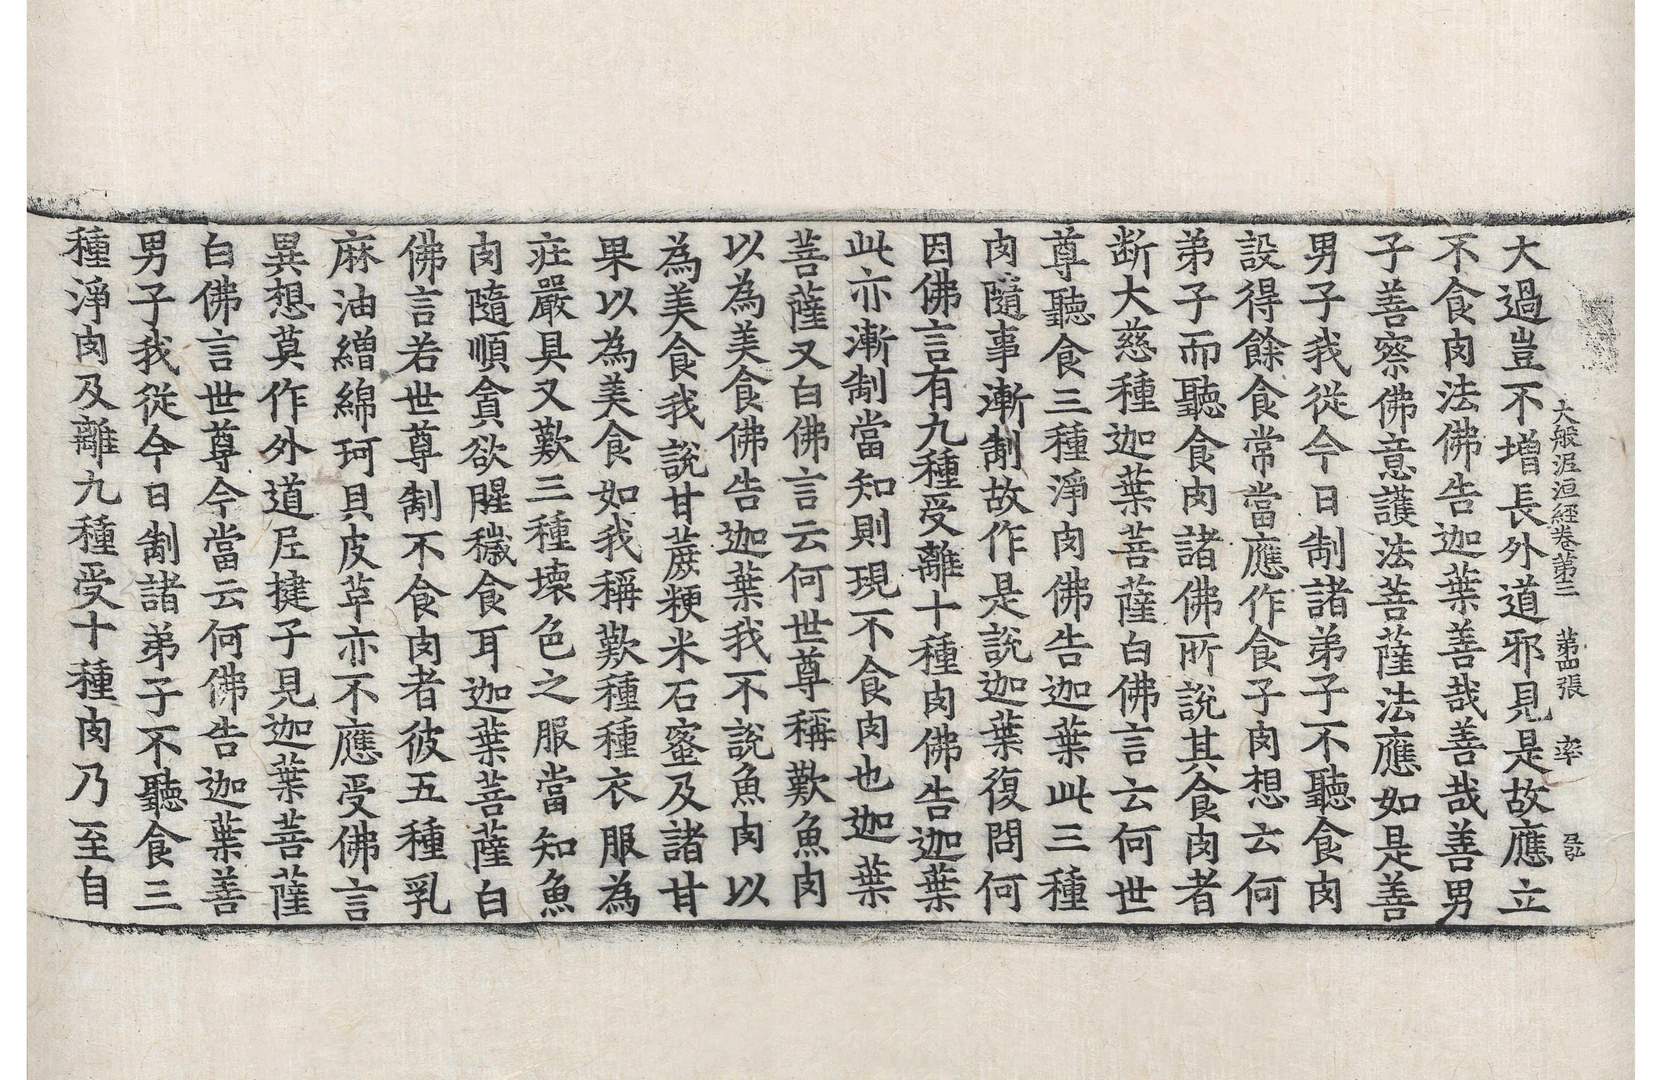 大般泥洹經卷第三 第四張 率
大過豈不增長外道邪見是故應立
不食肉法佛告迦葉善哉善哉善男
子善察佛意護法菩薩法應如是善
男子我從今日制諸弟子不聽食肉
設得餘食常當應作食子肉想云何
弟子而聽食肉諸佛所說其食肉者
断大慈種迦葉菩薩白佛言云何世
尊聽食三種淨肉佛告迦葉此三種
肉隨事漸制故作是說迦葉復問何
因佛言有九種受離十種肉佛告迦葉
此亦漸制當知則現不食肉也迦葉
菩薩又白佛言云何世尊稱歎魚肉
以為美食佛告迦葉我不說魚肉以
為美食我說甘蔗粳米石蜜及諸甘
果以為美食如我稱歎種種衣服為
莊嚴具又歎三種壞色之服當知魚
肉隨順貪欲腥穢食耳迦葉菩薩白
佛言若世尊制不食肉者彼五種乳
麻油繒綿珂貝皮革亦不應受佛言
異想莫作外道尼揵子見迦葉菩薩
白佛言世尊今當云何佛告迦葉善
男子我從今日制諸弟子不聽食三
種淨肉及離九種受十種肉乃至自